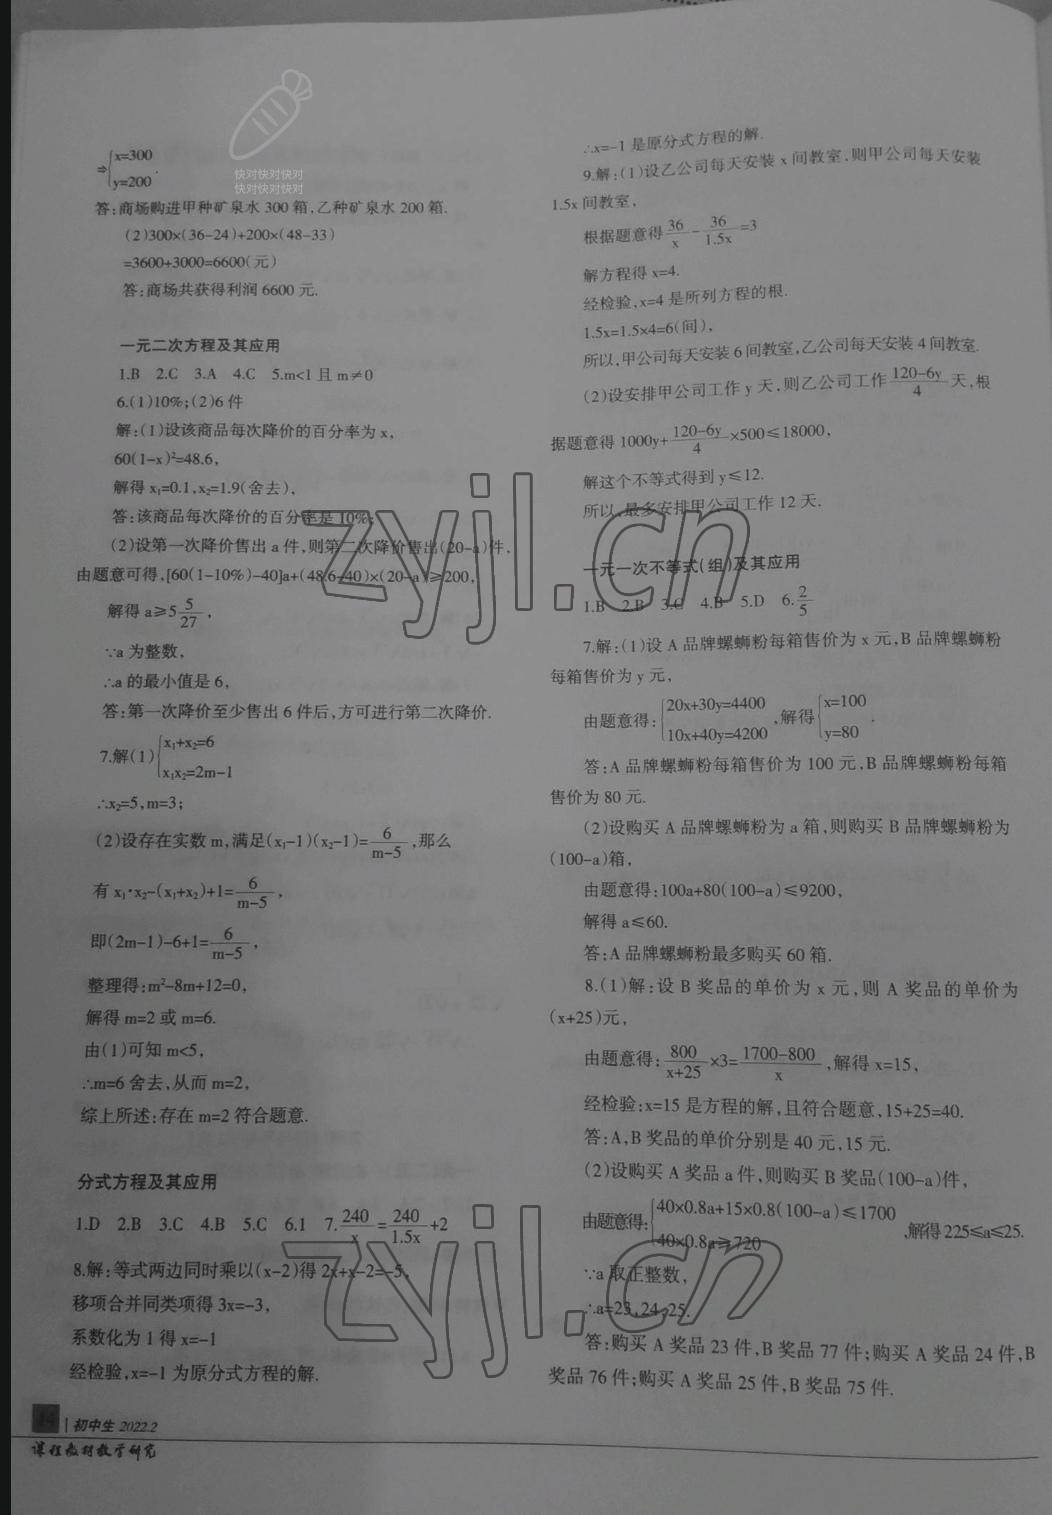 ⇒{x=300
y=200.
答:商场购进甲种矿泉水 300 箱,乙种矿泉水 200 箱.
(2)300×(36-24)+200×(48-33)
=3600+3000=6600(元)
答:商场共获得利润 6600 元.
一元二次方程及其应用
1.B 2.C 3.A 4.C 5.m<1 且 m≠0
6.(1)10%;(2)6 件
解:(1)设该商品每次降价的百分率为 x,
60(1-x)²=48.6,
解得 x₁=0.1,x₂=1.9(舍去),
答:该商品每次降价的百分率是 10%;
(2)设第一次降价售出 a 件,则第二次降价售出(20-a)件,
由题意可得,[60(1-10%)-40]a+(48.6-40)×(20-a)≥200,
解得 a≥5 5/27,
∵a 为整数,
∴a 的最小值是 6,
答:第一次降价至少售出 6 件后,方可进行第二次降价.
7.解(1){x₁+x₂=6
x₁x₂=2m-1
∴x₂=5,m=3;
(2)设存在实数 m,满足(x₁-1)(x₂-1)=6/(m-5),那么
有 x₁·x₂-(x₁+x₂)+1=6/(m-5),
即(2m-1)-6+1=6/(m-5),
整理得:m²-8m+12=0,
解得 m=2 或 m=6.
由(1)可知 m<5,
∴m=6 舍去,从而 m=2,
综上所述:存在 m=2 符合题意.
分式方程及其应用
1.D 2.B 3.C 4.B 5.C 6.1 7.240/x=240/1.5x+2
8.解:等式两边同时乘以(x-2)得 2x+x-2=-5,
移项合并同类项得 3x=-3,
系数化为 1 得 x=-1
经检验,x=-1 为原分式方程的解.
∴x=-1 是原分式方程的解.
9.解:(1)设乙公司每天安装 x 间教室,则甲公司每天安装
1.5x 间教室,
根据题意得 36/x-36/1.5x=3
解方程得 x=4.
经检验,x=4 是所列方程的根.
1.5x=1.5×4=6(间),
所以,甲公司每天安装 6 间教室,乙公司每天安装 4 间教室.
(2)设安排甲公司工作 y 天,则乙公司工作 (120-6y)/4 天,根
据题意得 1000y+(120-6y)/4×500≤18000,
解这个不等式得到 y≤12.
所以,最多安排甲公司工作 12 天.
一元一次不等式(组)及其应用
1.B 2.B 3.C 4.B 5.D 6.2/5
7.解:(1)设 A 品牌螺蛳粉每箱售价为 x 元,B 品牌螺蛳粉
每箱售价为 y 元,
由题意得:{20x+30y=4400
10x+40y=4200,解得{x=100
y=80.
答:A 品牌螺蛳粉每箱售价为 100 元,B 品牌螺蛳粉每箱
售价为 80 元.
(2)设购买 A 品牌螺蛳粉为 a 箱,则购买 B 品牌螺蛳粉为
(100-a)箱,
由题意得:100a+80(100-a)≤9200,
解得 a≤60.
答:A 品牌螺蛳粉最多购买 60 箱.
8.(1)解:设 B 奖品的单价为 x 元,则 A 奖品的单价为
(x+25)元,
由题意得:800/(x+25)×3=(1700-800)/x,解得 x=15,
经检验:x=15 是方程的解,且符合题意,15+25=40.
答:A,B 奖品的单价分别是 40 元,15 元.
(2)设购买 A 奖品 a 件,则购买 B 奖品(100-a)件,
由题意得:{40×0.8a+15×0.8(100-a)≤1700
40×0.8a≥720,解得 225≤a≤25.
∵a 取正整数,
∴a=23,24,25.
答:购买 A 奖品 23 件,B 奖品 77 件;购买 A 奖品 24 件,B
奖品 76 件;购买 A 奖品 25 件,B 奖品 75 件.
初中生 2022.2
课程教材教学研究
快对快对快对
快对快对快对
zyjl.cn
zyjl.cn